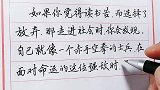 如果你觉得读书苦，而选择了
放弃，那走进社会时你会发现，
自己就像一个赤手空拳的士兵，在
面对命运的这位强敌时，